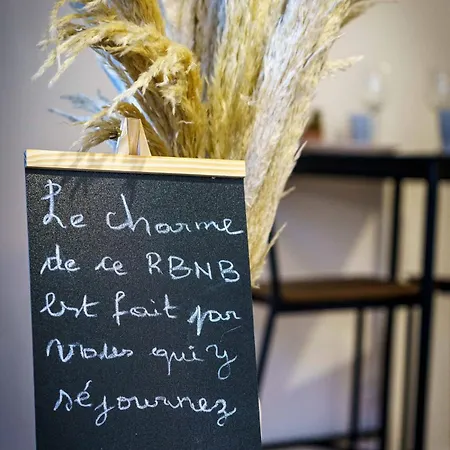 Le charme
de ce RBNB
Est fait par
vous qui y
séjournez